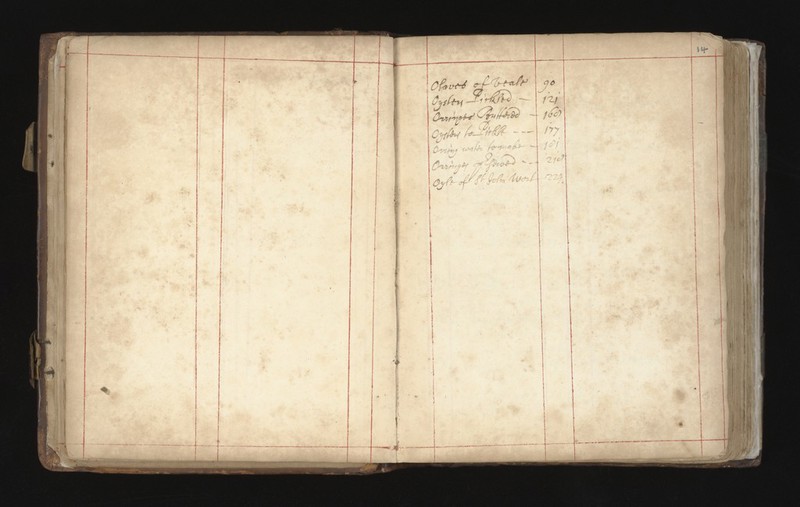 14
Olaves of Veale 90
Oysters Pickled — 121
Orringes 160
Oysters to Pickle - - - 177
Orring water to make — 181
Orringes
Oyle of St Johns Wort